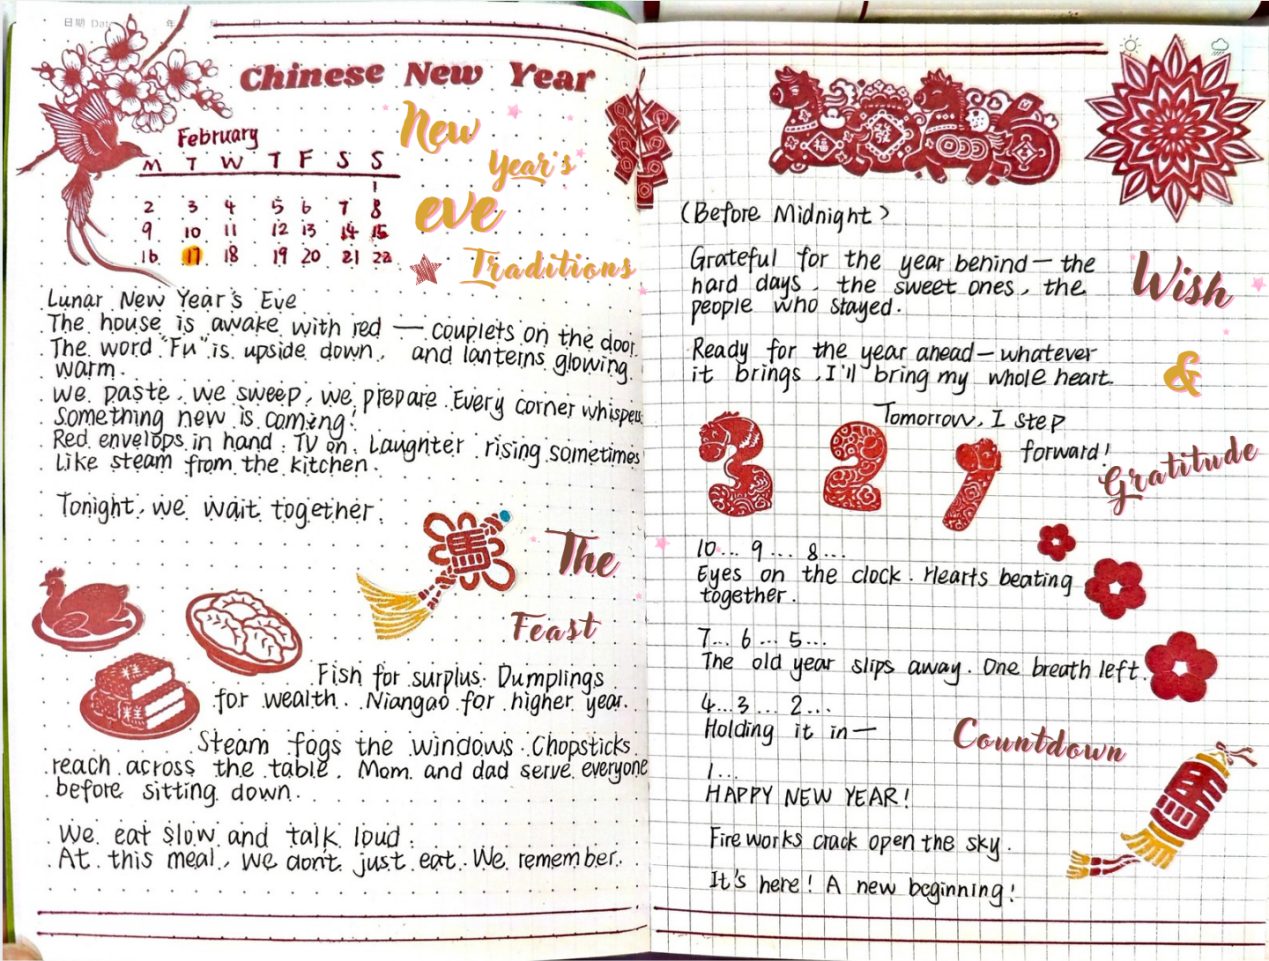 日期 Date 年 月 日
Chinese New Year
New
Year's
eve
Traditions
February
M T W T F S S
1
2 3 4 5 6 7 8
9 10 11 12 13 14 15
16 17 18 19 20 21 22
Lunar New Year's Eve
The house is awake with red — couplets on the door.
The word "Fu" is upside down, and lanterns glowing
warm.
We paste, we sweep, we prepare. Every corner whispers
Something new is coming!
Red envelops in hand. TV on. Laughter rising sometimes
Like steam from the kitchen.
Tonight, we wait together.
馬
The
Feast
Fish for surplus. Dumplings
for wealth. Niangao for higher year.
Steam fogs the windows. Chopsticks
reach across the table. Mom and dad serve everyone
before sitting down.
We eat slow and talk loud.
At this meal, we don't just eat. We remember.
福
(Before Midnight)
Grateful for the year behind — the
hard days, the sweet ones, the
people who stayed.
Wish
&
Gratitude
Ready for the year ahead — whatever
it brings, I'll bring my whole heart.
Tomorrow, I step
forward!
3 2 1
10... 9... 8...
Eyes on the clock. Hearts beating
together.
7... 6... 5...
The old year slips away. One breath left.
4...3... 2...
Holding it in —
Countdown
1...
HAPPY NEW YEAR!
Fireworks crack open the sky.
It's here! A new beginning!
馬